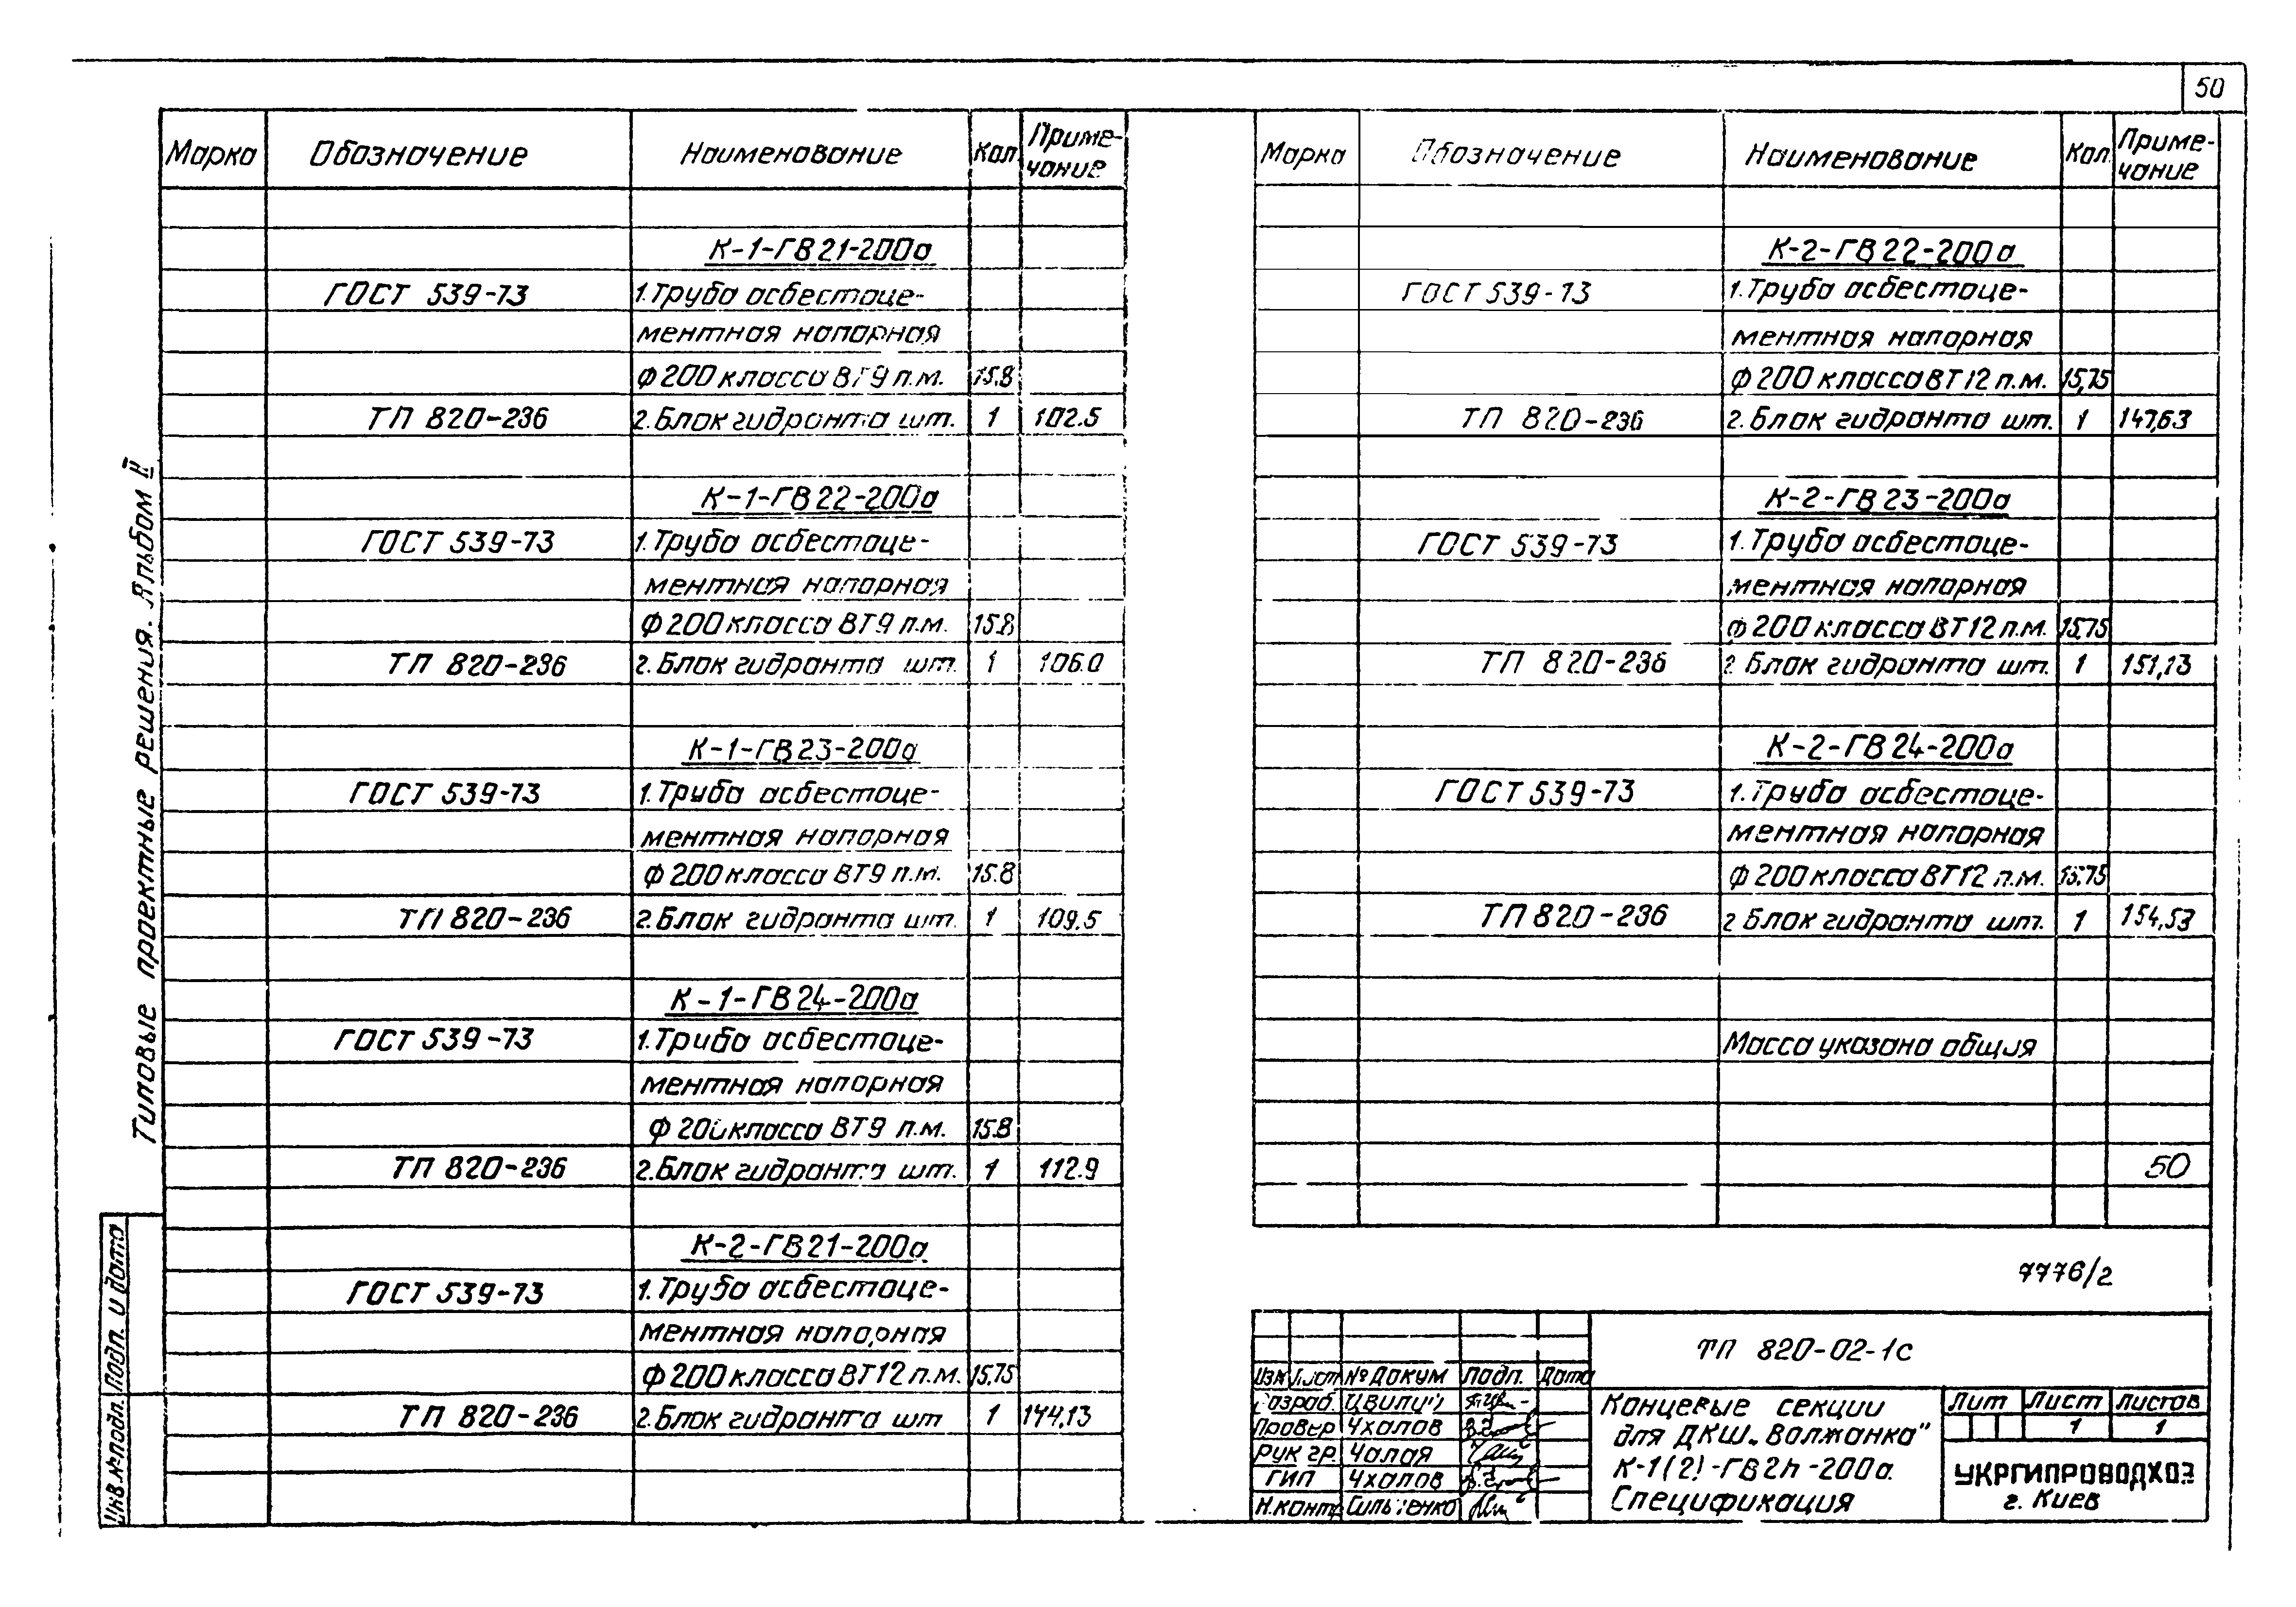 50
Марка Обозначение Наименование Кол Приме-
чание
К-1-ГВ21-200а
ГОСТ 539-73 1. Труба асбестоце-
ментная напорная
Ф200 класса ВТ9 п.м. 15.8
ТП 820-236 2. Блок гидранта шт. 1 102.5
К-1-ГВ22-200а
ГОСТ 539-73 1. Труба асбестоце-
ментная напорная
Ф200 класса ВТ9 п.м. 15.8
ТП 820-236 2. Блок гидранта шт. 1 106.0
К-1-ГВ23-200а
ГОСТ 539-73 1. Труба асбестоце-
ментная напорная
Ф200 класса ВТ9 п.м. 15.8
ТП 820-236 2. Блок гидранта шт. 1 109.5
К-1-ГВ24-200а
ГОСТ 539-73 1. Труба асбестоце-
ментная напорная
Ф200 класса ВТ9 п.м. 15.8
ТП 820-236 2. Блок гидранта шт. 1 112.9
К-2-ГВ21-200а
ГОСТ 539-73 1. Труба асбестоце-
ментная напорная
Ф200 класса ВТ12 п.м. 15.75
ТП 820-236 2. Блок гидранта шт 1 144,13
Марка Обозначение Наименование Кол. Приме-
чание
К-2-ГВ22-200а
ГОСТ 539-73 1. Труба асбестоце-
ментная напорная
Ф200 класса ВТ12 п.м. 15,75
ТП 820-236 2. Блок гидранта шт. 1 147,63
К-2-ГВ23-200а
ГОСТ 539-73 1. Труба асбестоце-
ментная напорная
Ф200 класса ВТ12 п.м. 15.75
ТП 820-236 2. Блок гидранта шт. 1 151,13
К-2-ГВ24-200а
ГОСТ 539-73 1. Труба асбестоце-
ментная напорная
Ф200 класса ВТ12 п.м. 15.75
ТП 820-236 2 Блок гидранта шт. 1 154,53
Масса указана общая
50
7776/2
Типовые проектные решения. Альбом II
Инв.№ подл. Подп. и дата
ТП 820-02-1с
Изм Лист № Докум Подп. Дата
Разраб. Цвилий
Провер Чхалов
Рук гр. Чалая
ГИП Чхалов
Н.контр Сильченко
Концевые секции
для ДКШ „Волжанка"
К-1(2)-ГВ2h-200а.
Спецификация
Лит Лист Листов
1 1
УКРГИПРОВОДХОЗ
г. Киев